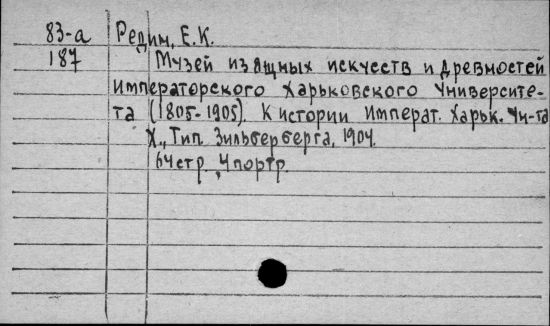 83-а Редин, Е.К.
187 Музей изящных искчеств и древностей
Императорского Харьковского Университе-
та (1805-1905). К истории Императ. Харьк. Ун-та
Х., Тип. Зильберберга, 1904.
64стр., 4портр.